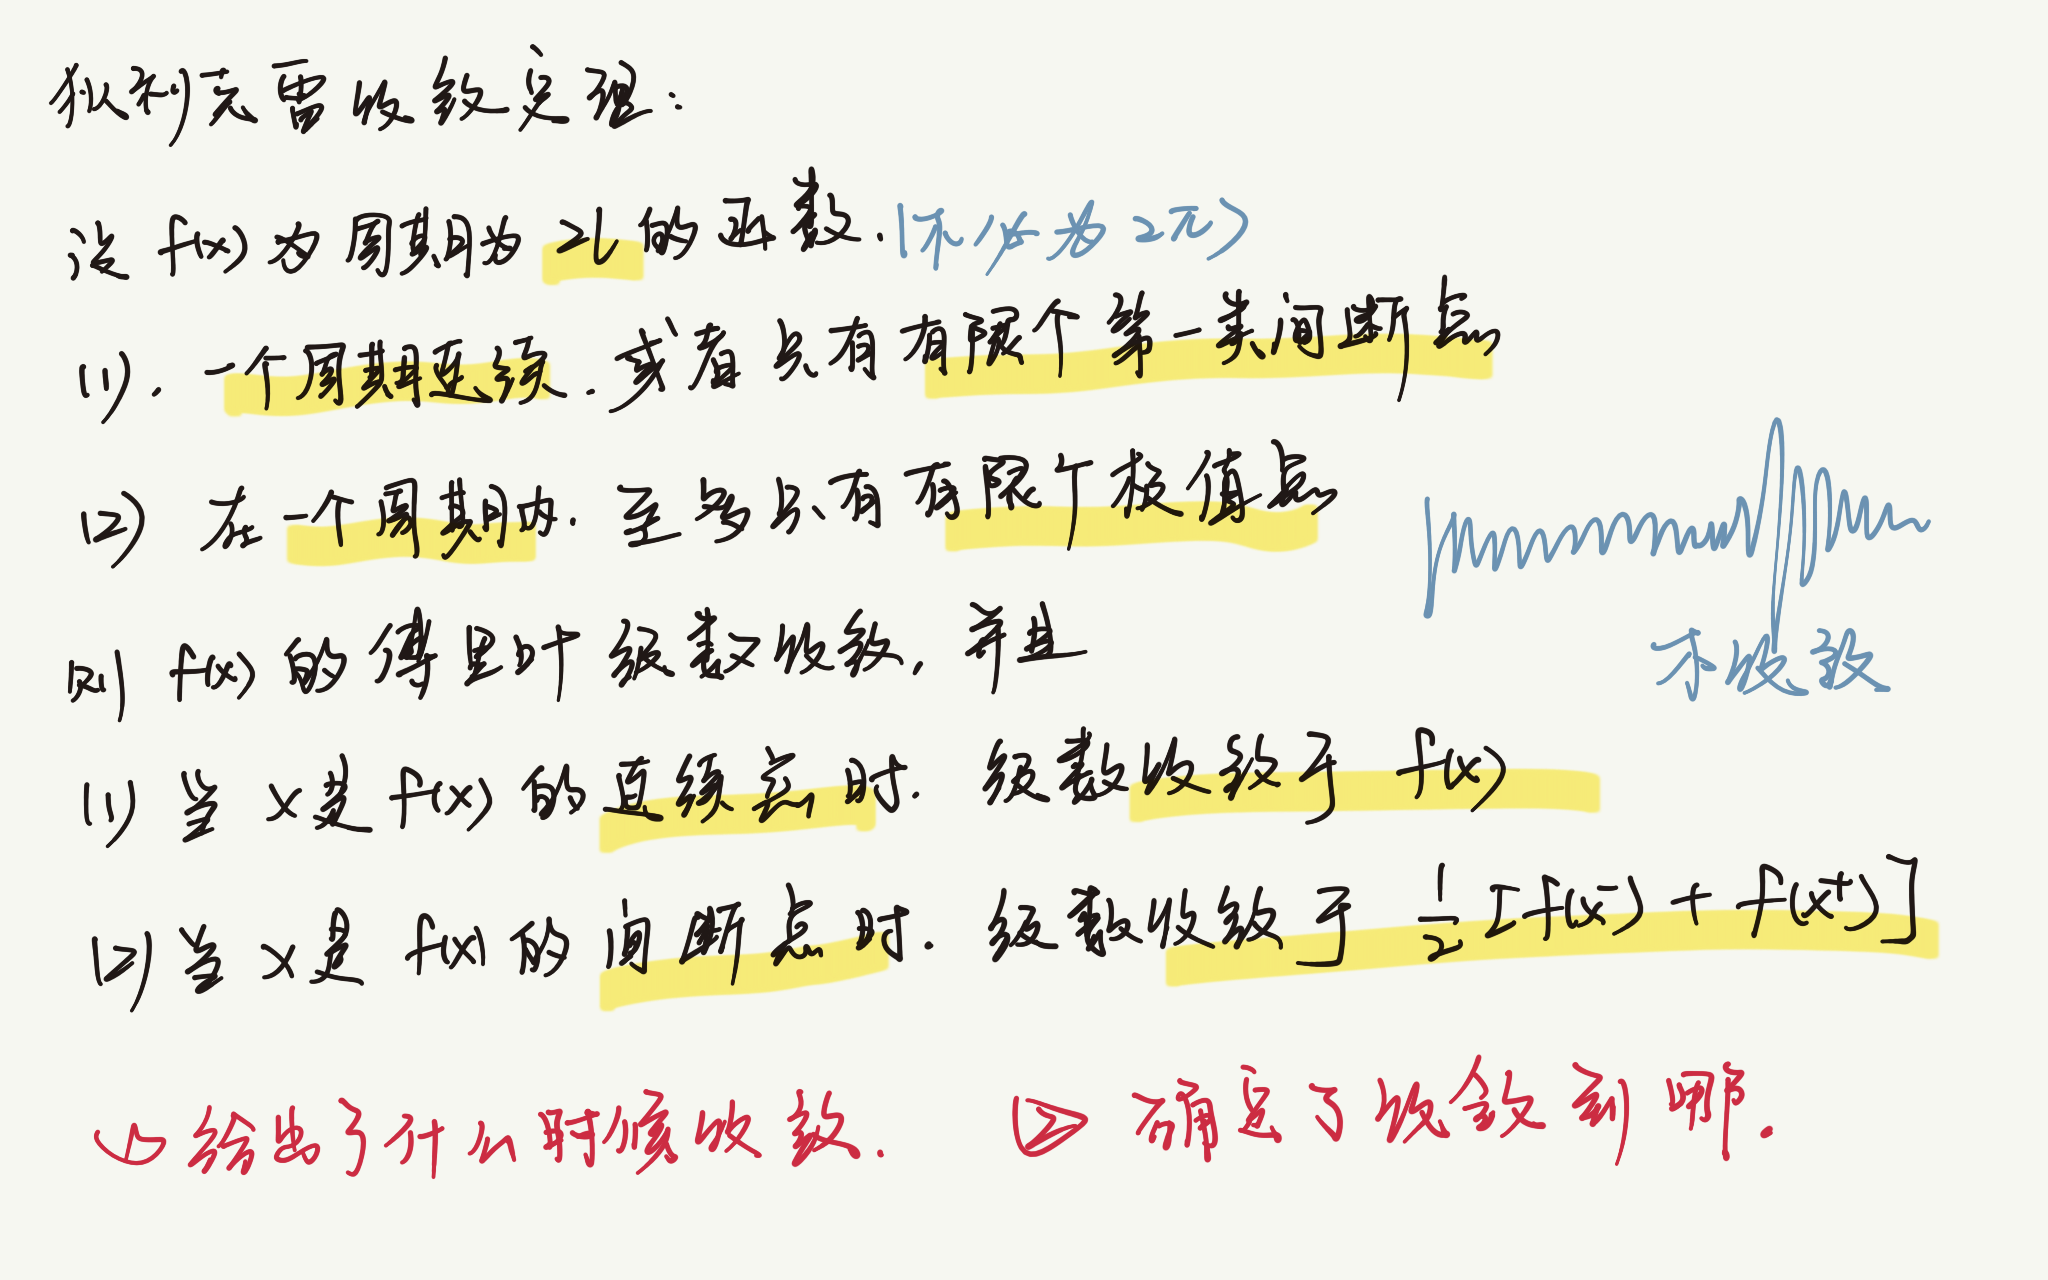 狄利克雷收敛定理：
设 f(x) 为周期为 2l 的函数.(不必为 2π)
(1). 一个周期连续. 或者只有有限个第一类间断点
(2) 在一个周期内. 至多只有有限个极值点
则 f(x) 的傅里叶级数收敛, 并且
不收敛
(1) 当 x 是 f(x) 的连续点时. 级数收敛于 f(x)
(2) 当 x 是 f(x) 的间断点时. 级数收敛于 1/2 [f(x⁻) + f(x⁺)]
① 给出了什么时候收敛. ② 确定了收敛到哪.